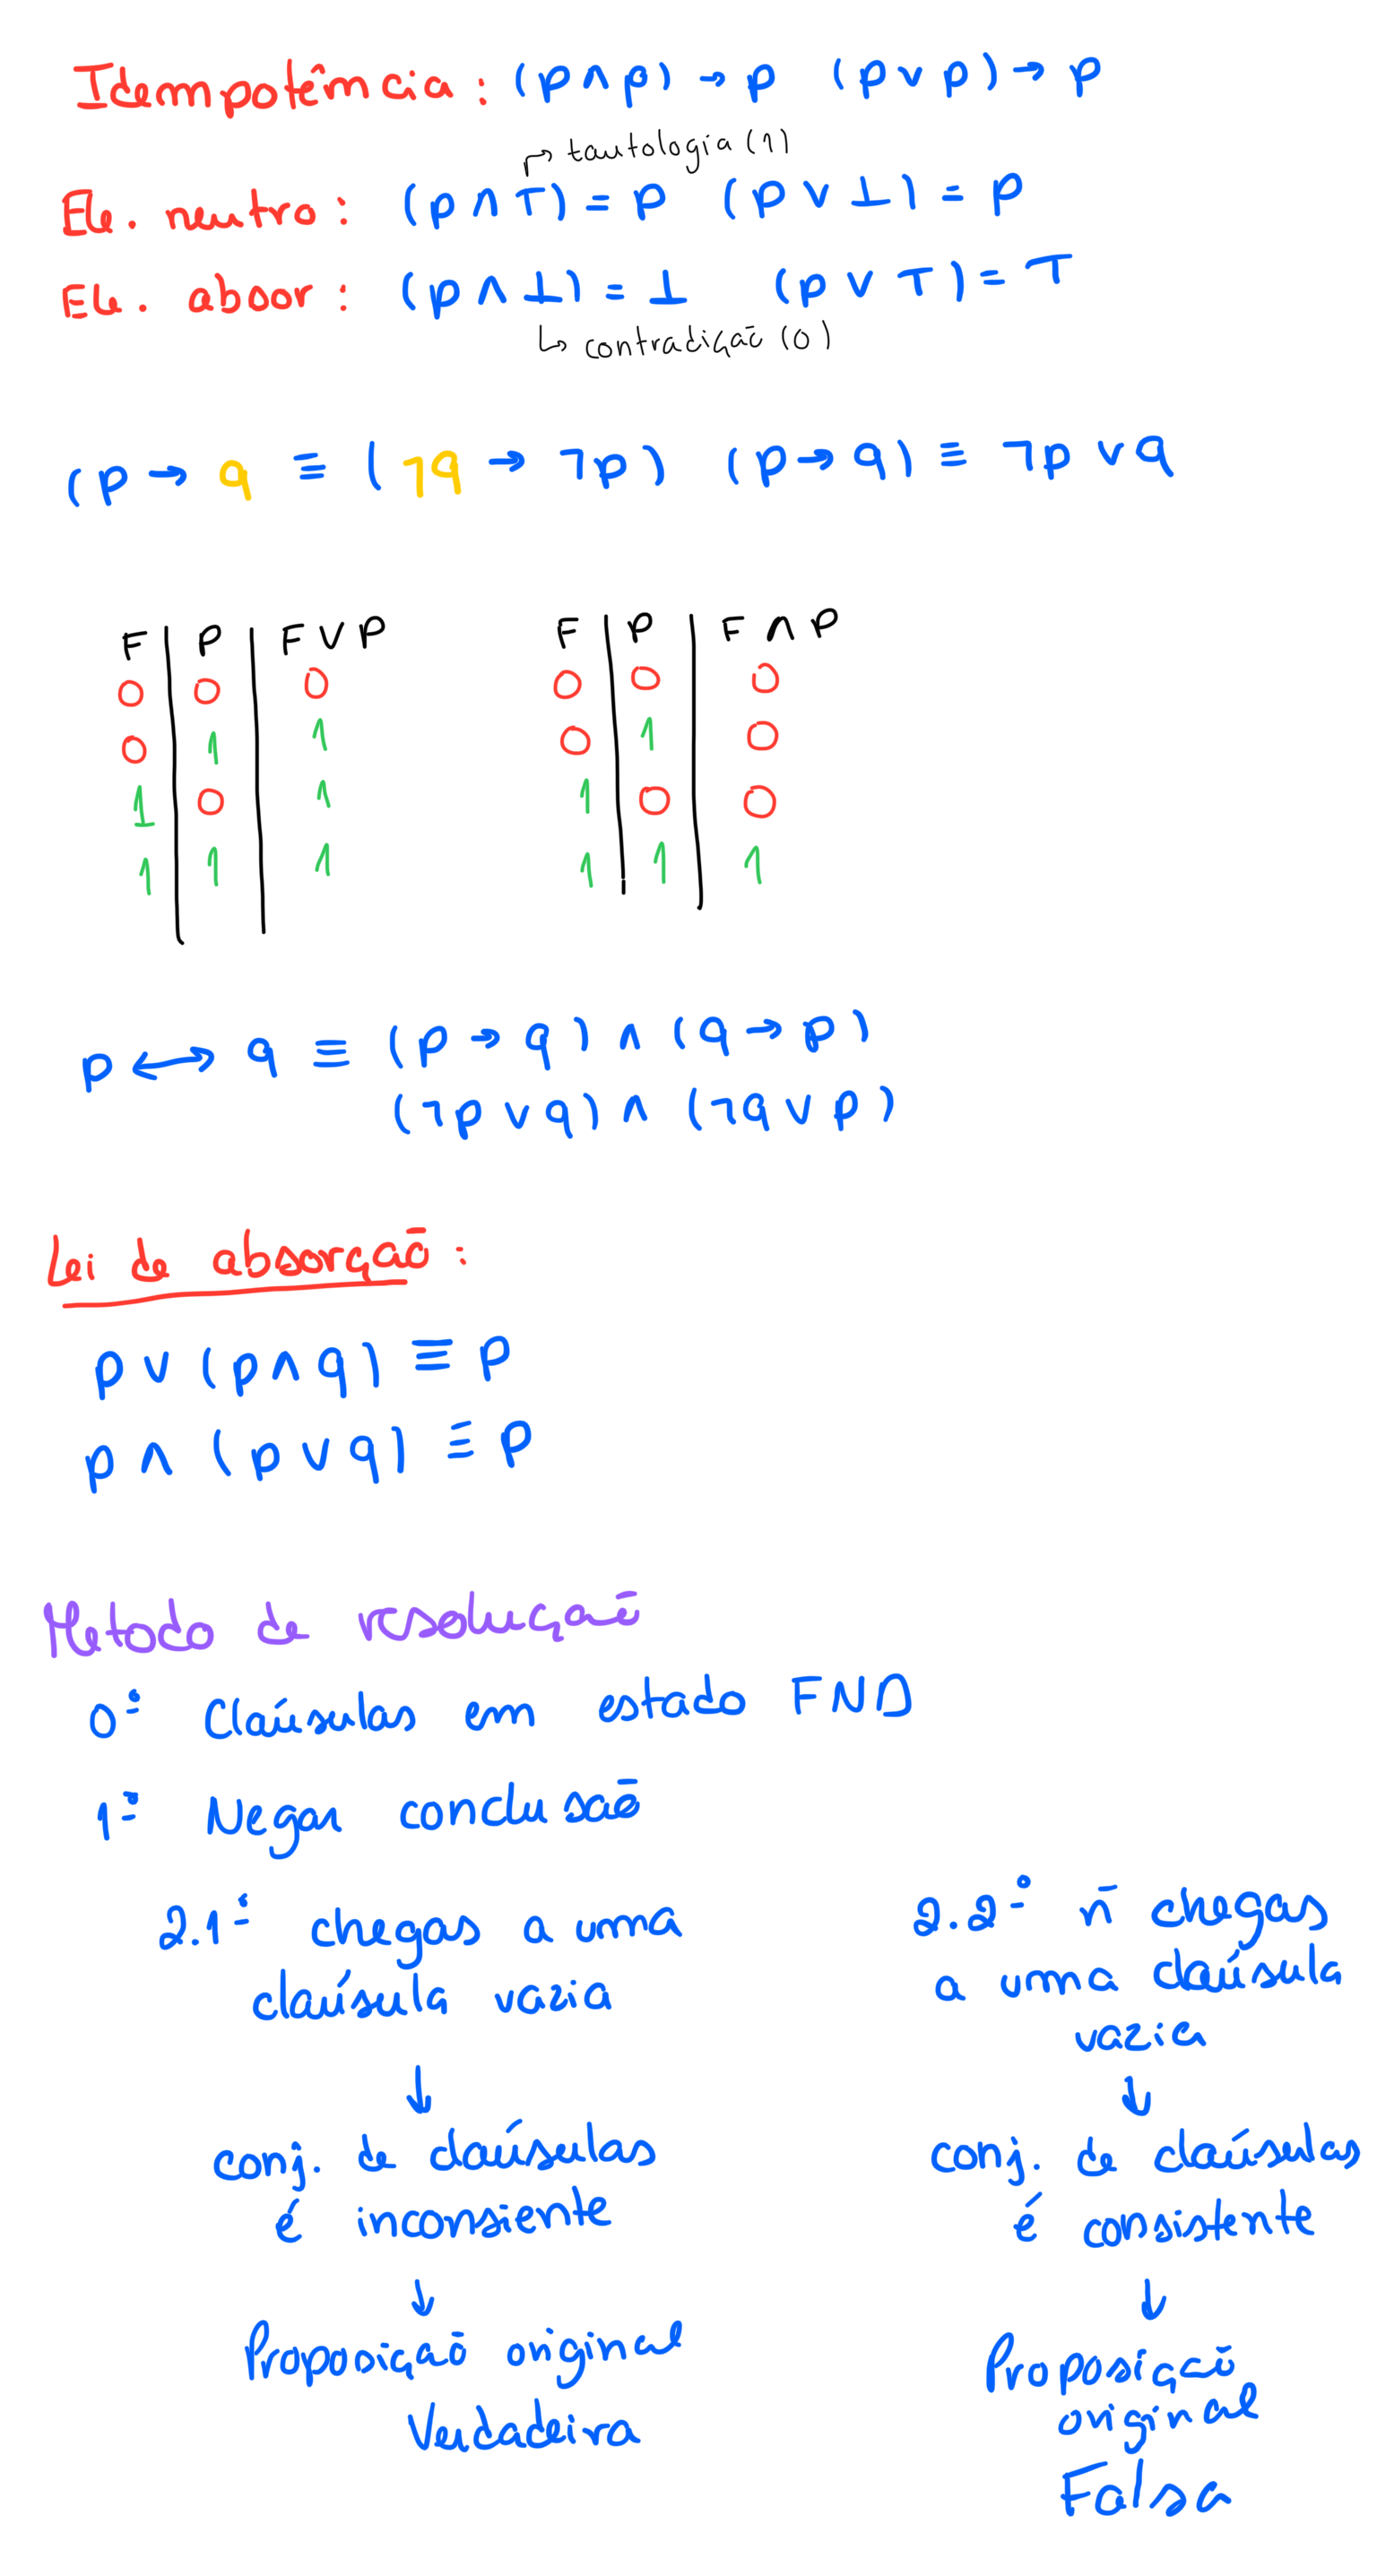 Idempotência: (p ∧ p) → p (p ∨ p) → p
↱ tautologia (1)
Ele. neutro: (p ∧ T) = p (p ∨ ⊥) = p
Ele. absor: (p ∧ ⊥) = ⊥ (p ∨ T) = T
↳ contradição (0)
(p → q ≡ (¬q → ¬p) (p → q) ≡ ¬p ∨ q
F | P | F ∨ P F | P | F ∧ P
0 0 0 0 0 0
0 1 1 0 1 0
1 0 1 1 0 0
1 1 1 1 1 1
p ↔ q ≡ (p → q) ∧ (q → p)
(¬p ∨ q) ∧ (¬q ∨ p)
Lei de absorção:
p ∨ (p ∧ q) ≡ p
p ∧ (p ∨ q) ≡ p
Metodo de resolução
0º Claúsulas em estado FND
1º Negar conclusão
2.1º chegas a uma
claúsula vazia
↓
conj. de claúsulas
é inconsiente
↓
Proposição original
Verdadeira
2.2º ñ chegas
a uma claúsula
vazia
↓
conj. de claúsulas
é consistente
↓
Proposição
original
Falsa